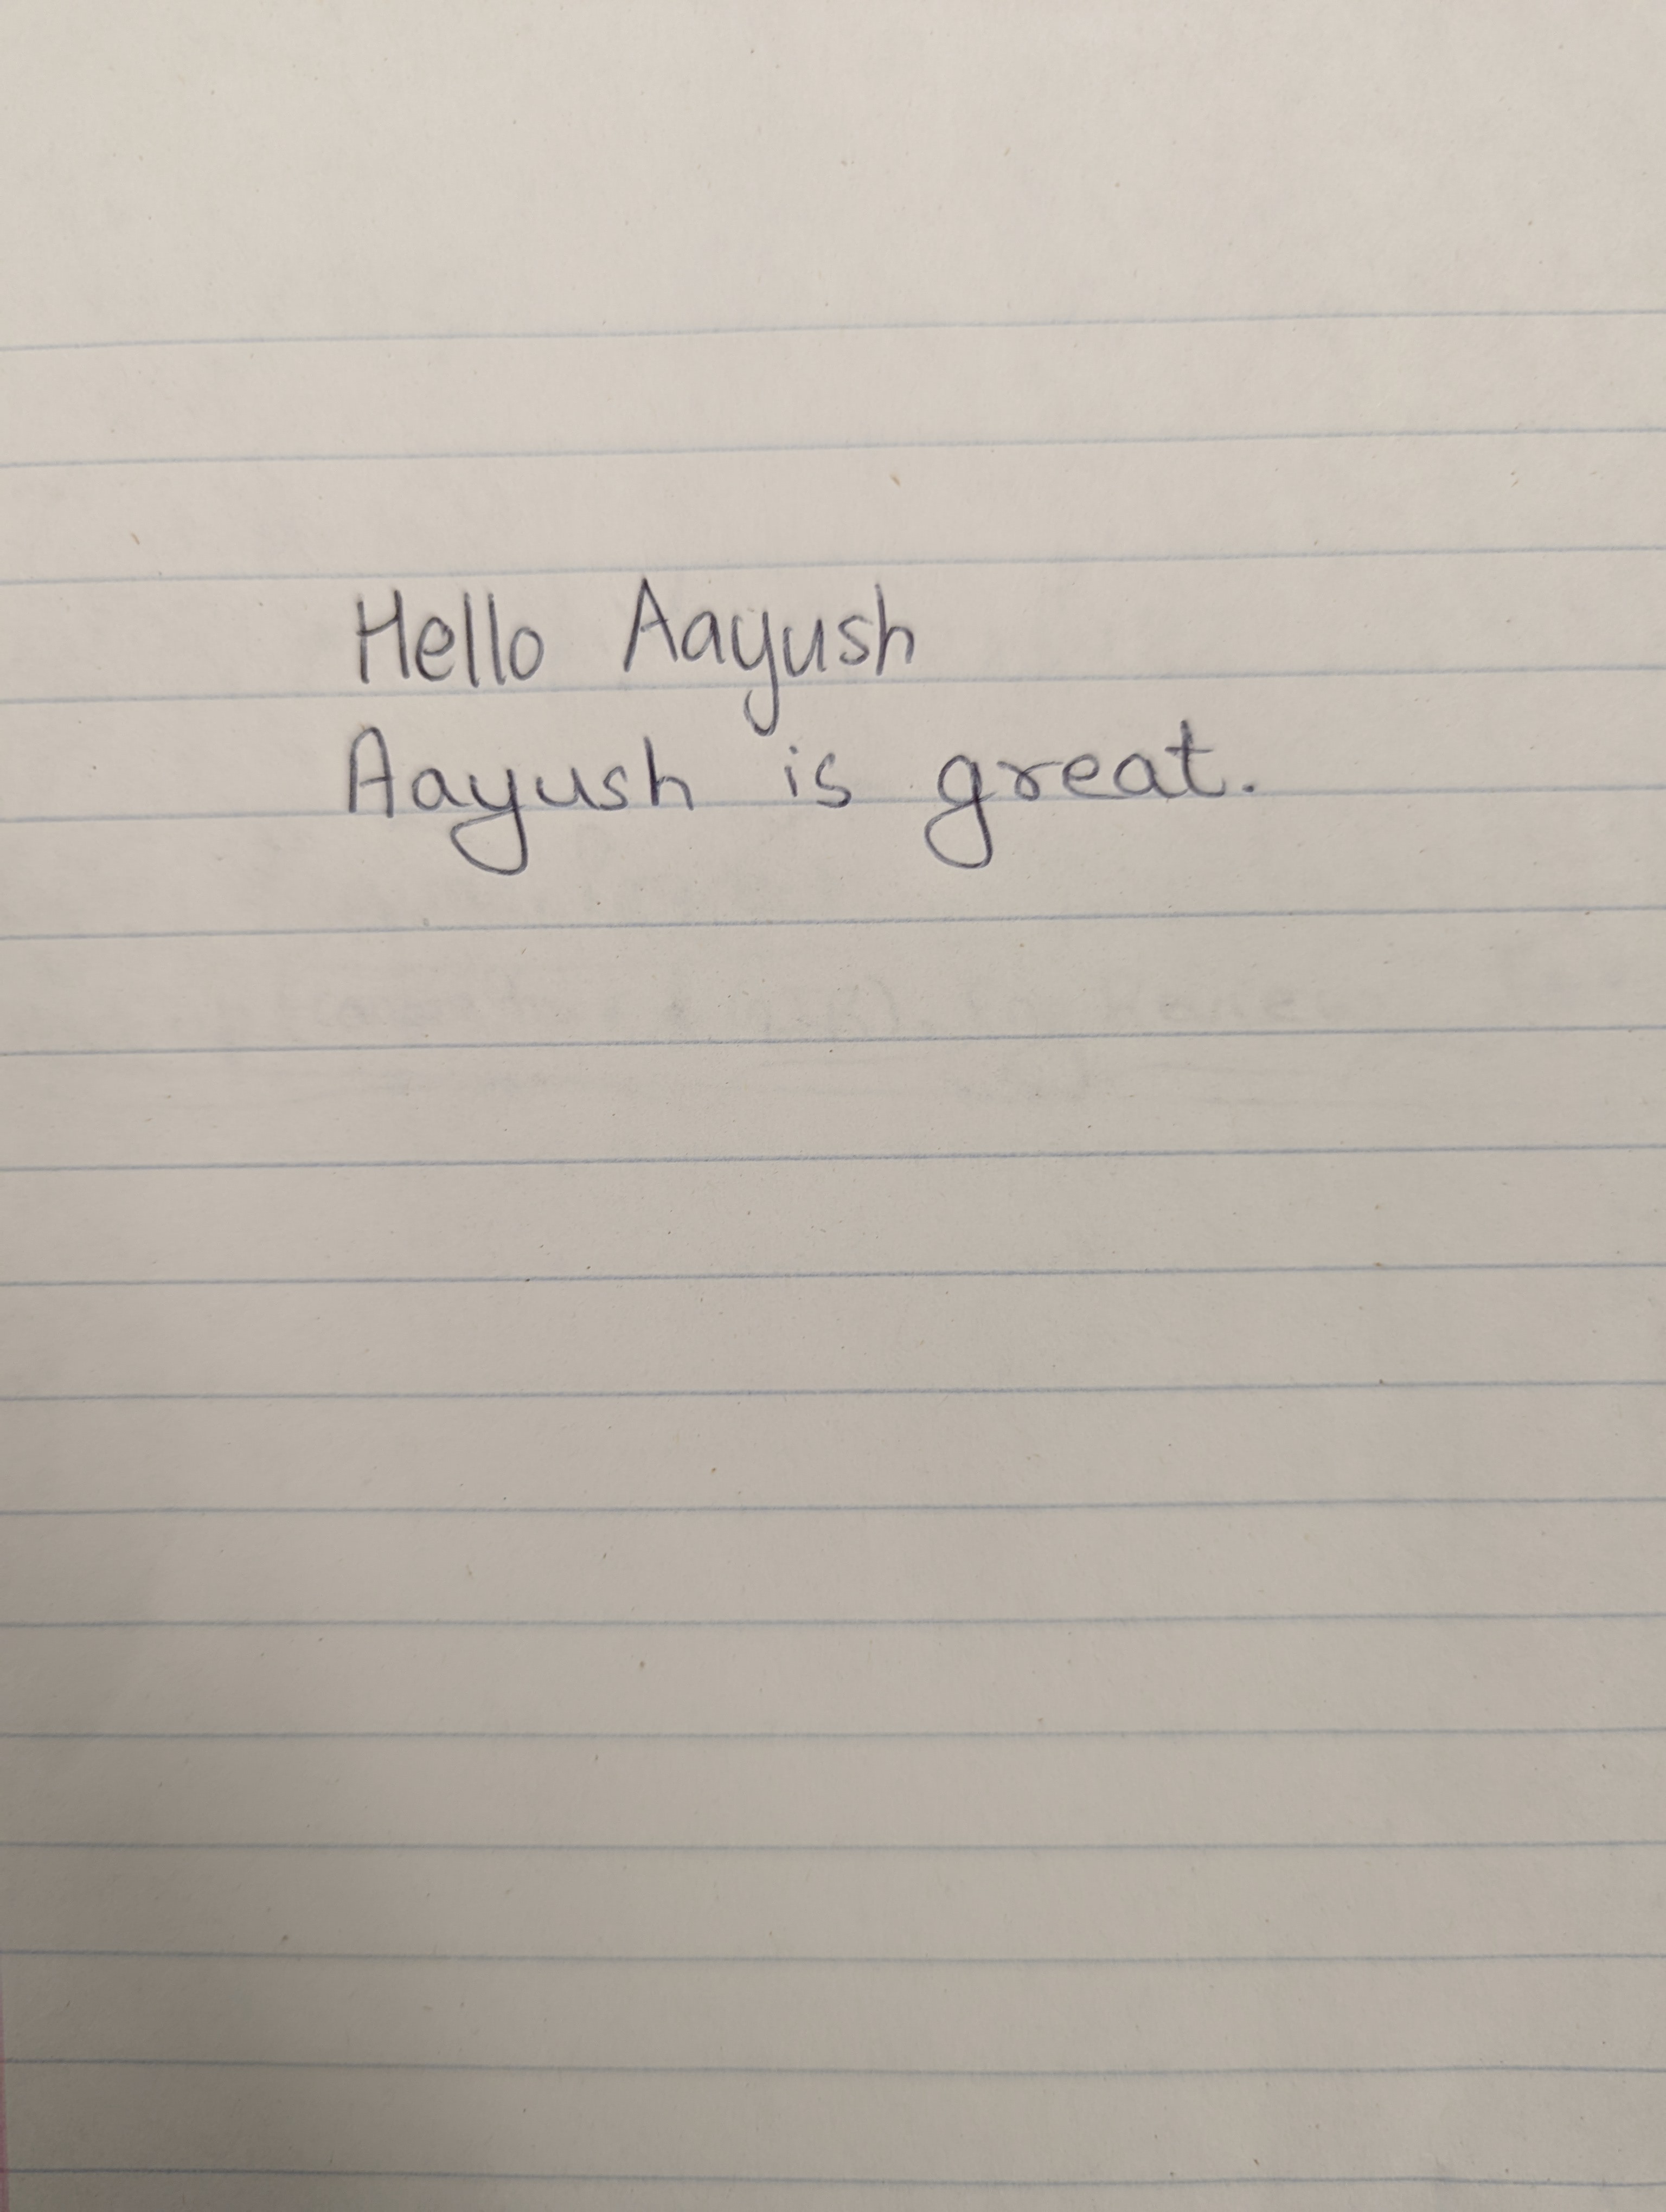 Hello Aayush
Aayush is great.